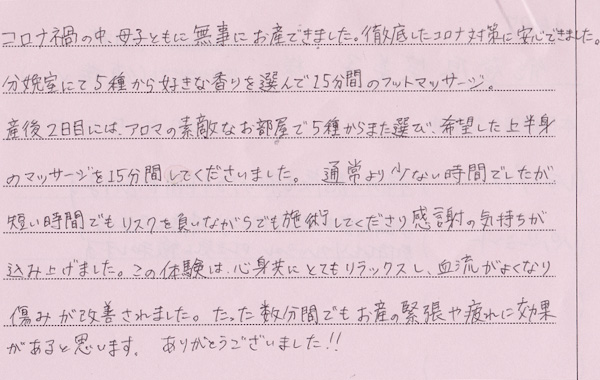 コロナ禍の中、母子ともに無事にお産できました。徹底したコロナ対策に安心できました。
分娩室にて5種から好きな香りを選んで15分間のフットマッサージ。
産後2日目には、アロマの素敵なお部屋で5種からまた選び、希望した上半身
のマッサージを15分間してくださいました。 通常より少ない時間でしたが
短い時間でもリスクを負いながらでも施術してくださり感謝の気持ちが
込み上げました。この体験は、心身共にとてもリラックスし、血流がよくなり
傷みが改善されました。たった数分間でもお産の緊張や疲れに効果
があると思います。 ありがとうございました!!